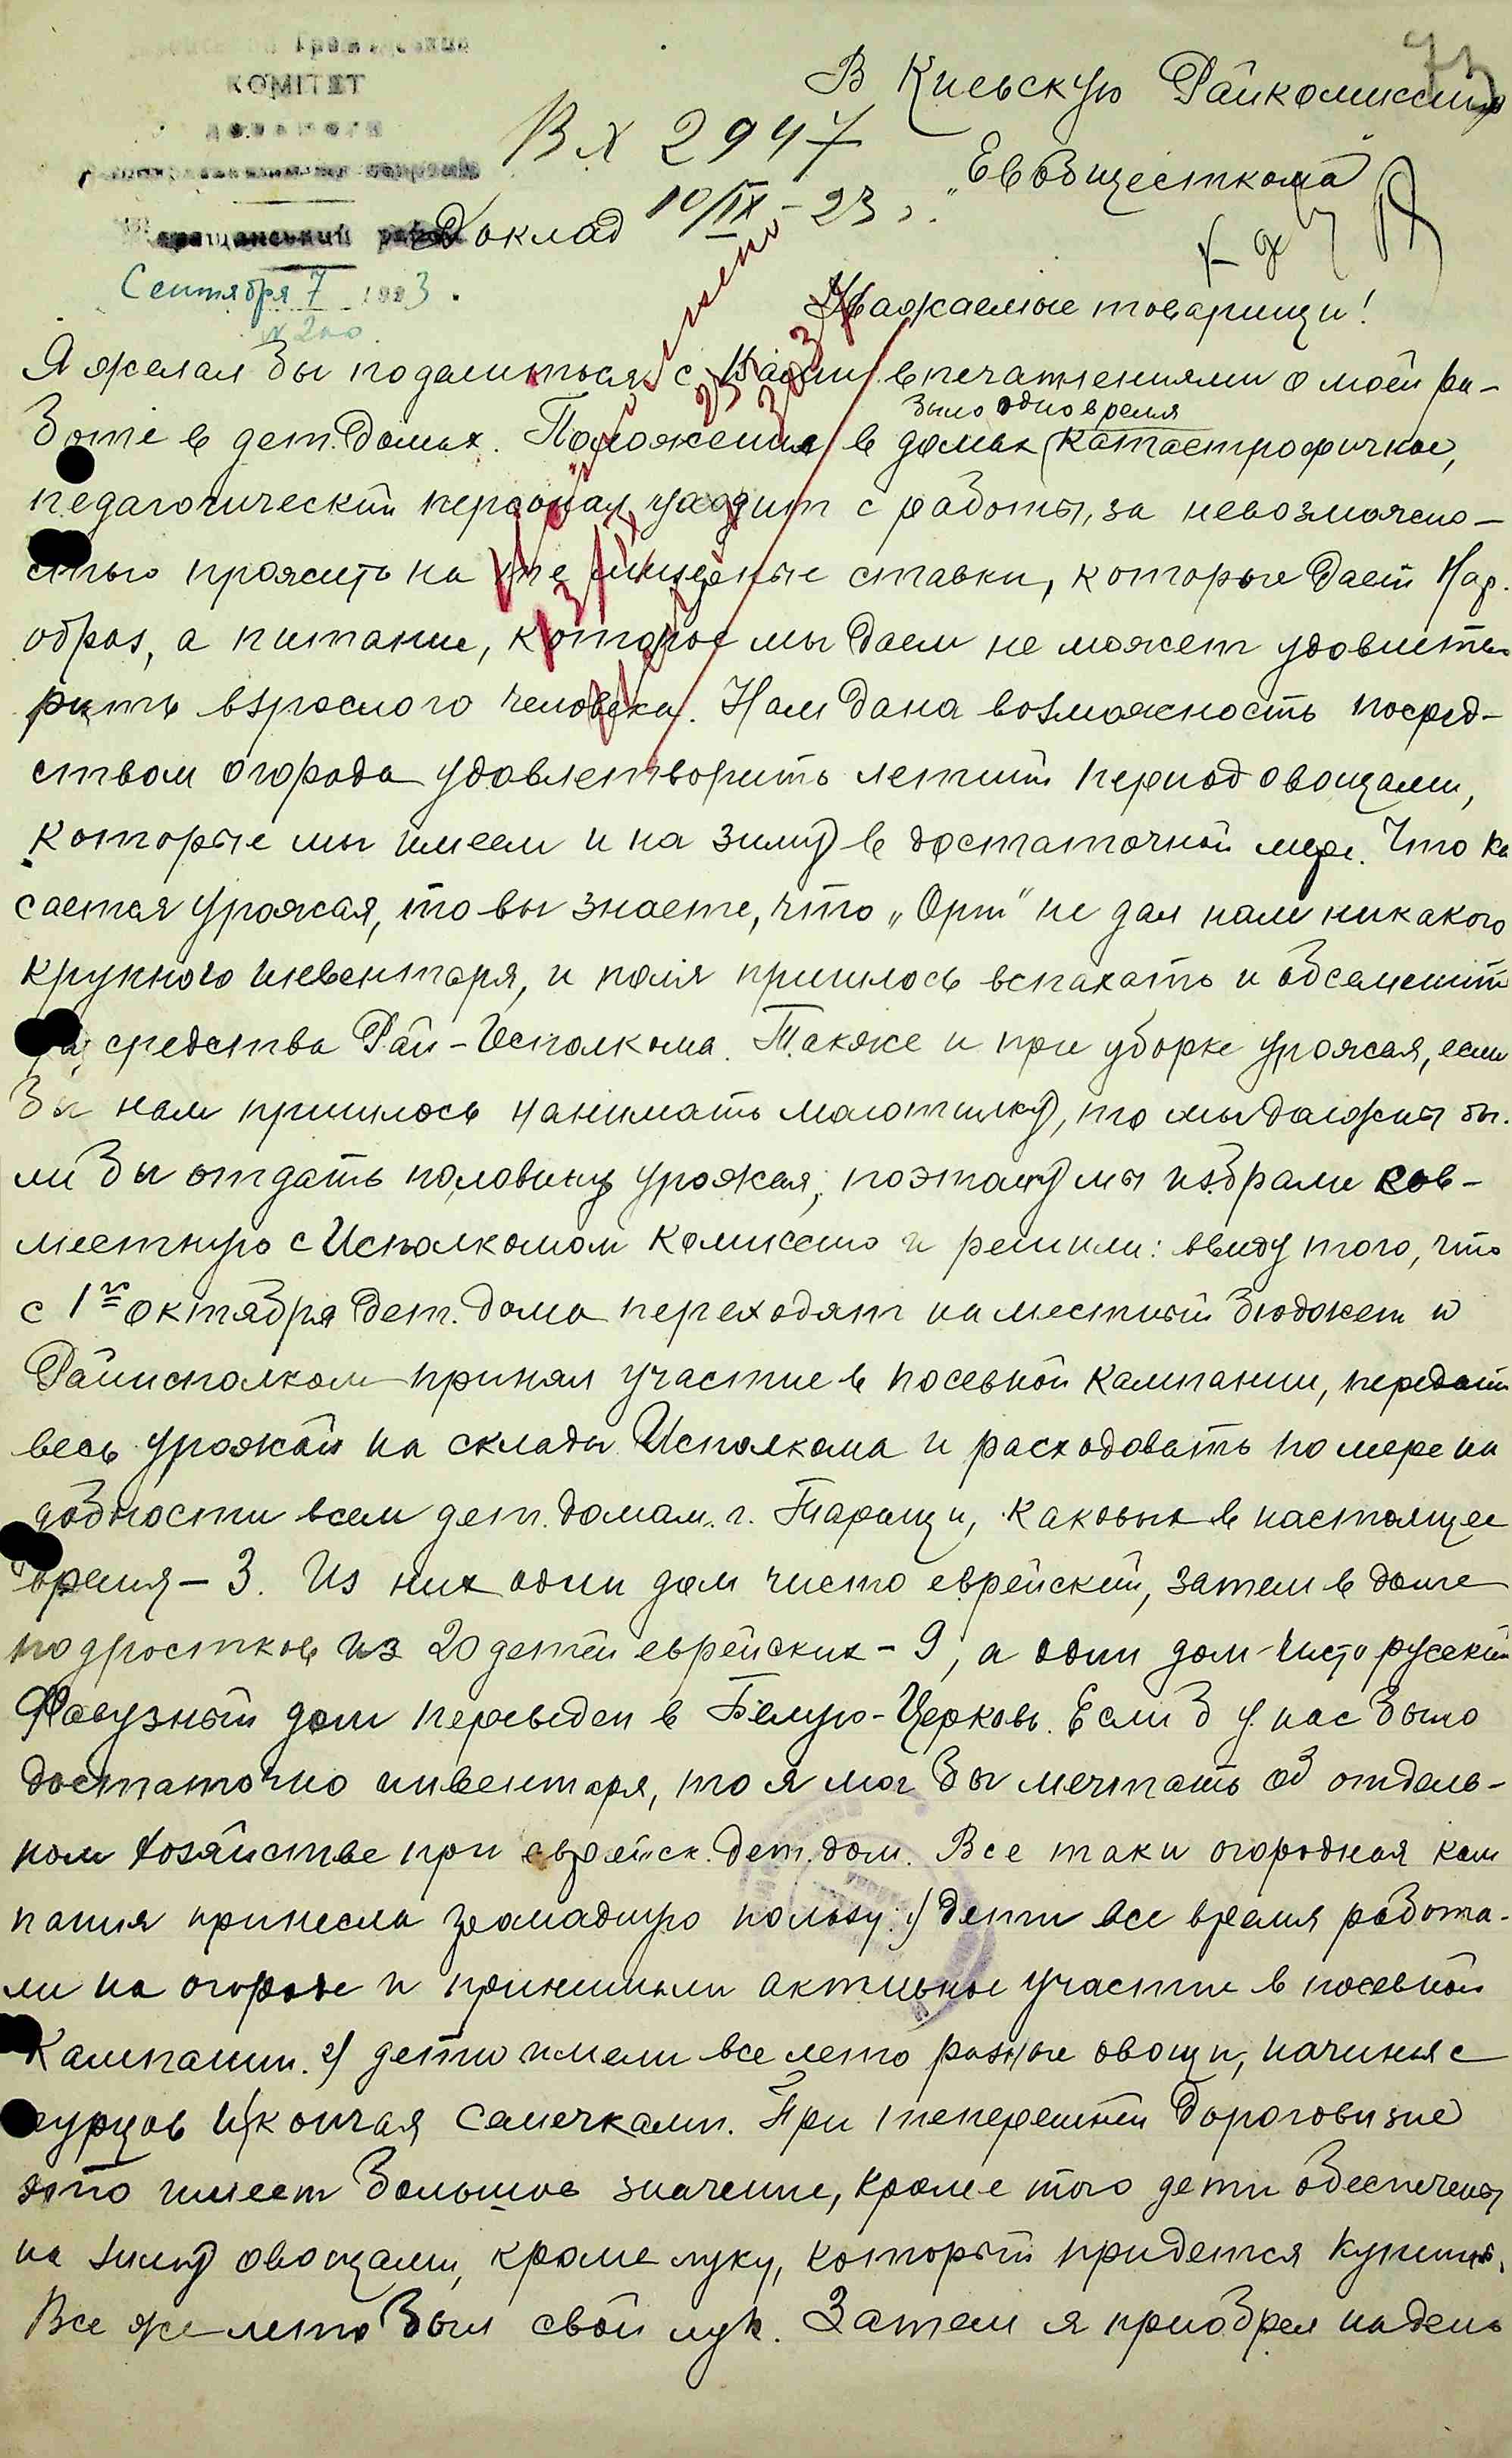 73
КОМІТЕТ
В Киевскую Райкомиссию
Вх 2947
"Евобщесткома"
10/IX-23 г.
Доклад
Таращанський район
Сентября 7 1923.
№ 200
Уважаемые товарищи!
Я желал бы поделиться с Вами впечатлениями о моей ра-
боте в дет. домах. Положение в домах было одно время катастрофичное,
педагогический персонал уходит с работы, за невозможно-
стью прожить на те мизерные ставки, которые дает Нар.
образ, а питание, которое мы даем не может удовлетво
рить взрослого человека. Нам дана возможность посред-
ством огорода удовлетворить летний период овощами,
которые мы имеем и на зиму в достаточной мере. Что ка
сается урожая, то вы знаете, что „Орт" не дал нам никакого
крупного инвентаря, и поля пришлось вспахать и обсеменить
на средства Рай-Исполкома. Также и при уборке урожая, если
бы нам пришлось нанимать молотилку, то мы должны бы.
ли бы отдать половину урожая, поэтому мы избрали сов-
местную с Исполкомом комиссию и решили: ввиду того, что
с 1го октября дет. дома переходят на местный бюджет и
Райисполком принял участие в посевной кампании, передать
весь урожай на склады Исполкома и расходовать по мере на
добности всем дет. домам г. Таращи, каковых в настоящее
время – 3. Из них один дом чисто еврейский, затем в доме
подростков из 20 детей еврейских – 9, а один дом чисто русский
Фавузный дом переведен в Белую-Церковь. Если б у нас было
достаточно инвентаря, то я мог бы мечтать об отдель-
ном хозяйстве при еврейск. дет. дом. Все таки огородная кам
пания принесла громадную пользу: 1) дети все время работа-
ли на огороде и принимали активное участие в посевной
кампании. 2) дети имели все лето разные овощи, начиная с
огурцов и кончая семечками. При теперешней дороговизне
это имеет большое значение, кроме того дети обеспечены
на зиму овощами, кроме луку, который придется купить.
Все же лето был свой лук. Затем я приобрел на день